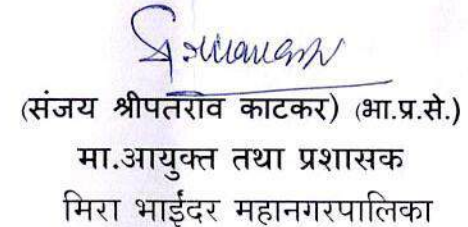 (संजय श्रीपतराव काटकर) (भा.प्र.से.)
मा.आयुक्त तथा प्रशासक
मिरा भाईंदर महानगरपालिका